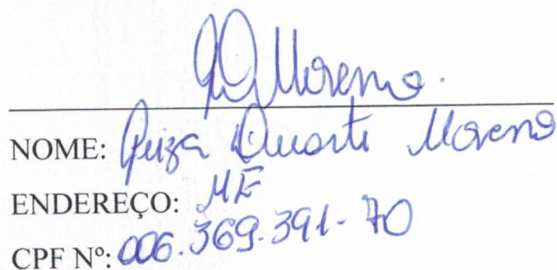 Moreno.
NOME: Geiza Duarte Moreno
ENDEREÇO: ME
CPF Nº: 006.369.391-70